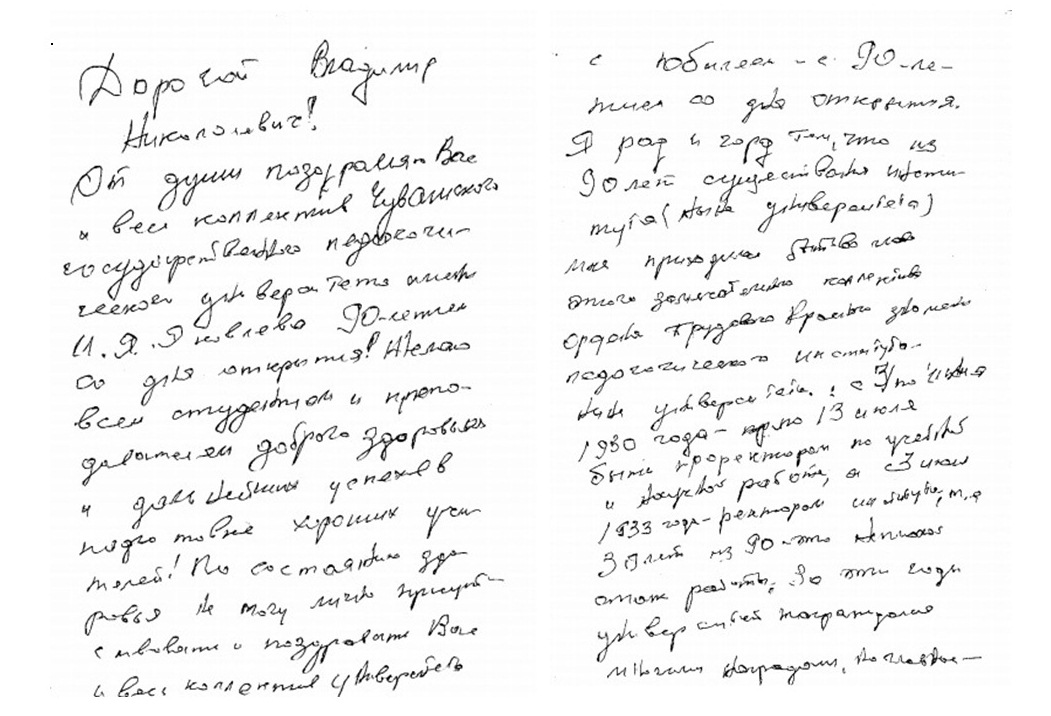 Дорогой Владимир
Николаевич!
От души поздравляю Вас
и весь коллектив Чувашского
государственного педагоги-
ческого университета имени
И. Я. Яковлева 90-летием
со дня открытия! Желаю
всем студентам и препо-
давателям доброго здоровья
и дальнейших успехов в
подготовке хороших учи-
телей! По состоянию здо-
ровья не могу лично присут-
ствовать и поздравить Вас
и весь коллектив университета
с юбилеем - с 90-ле-
тием со дня открытия.
Я рад и горд тем, что из
90 лет существования инсти-
тута (ныне университета)
мне приходилось
этого замечательного коллектива
ордена Трудового Красного знамени
педагогического института-
ныне университета. : с
1930 года- по 13 июля
быть проректором по учебной
и научной работе, а с 3 июля
1933 года- ректором института, т.е
30 лет из 90-это
работы. За эти годы
университет награждался
многими наградами, но главное-